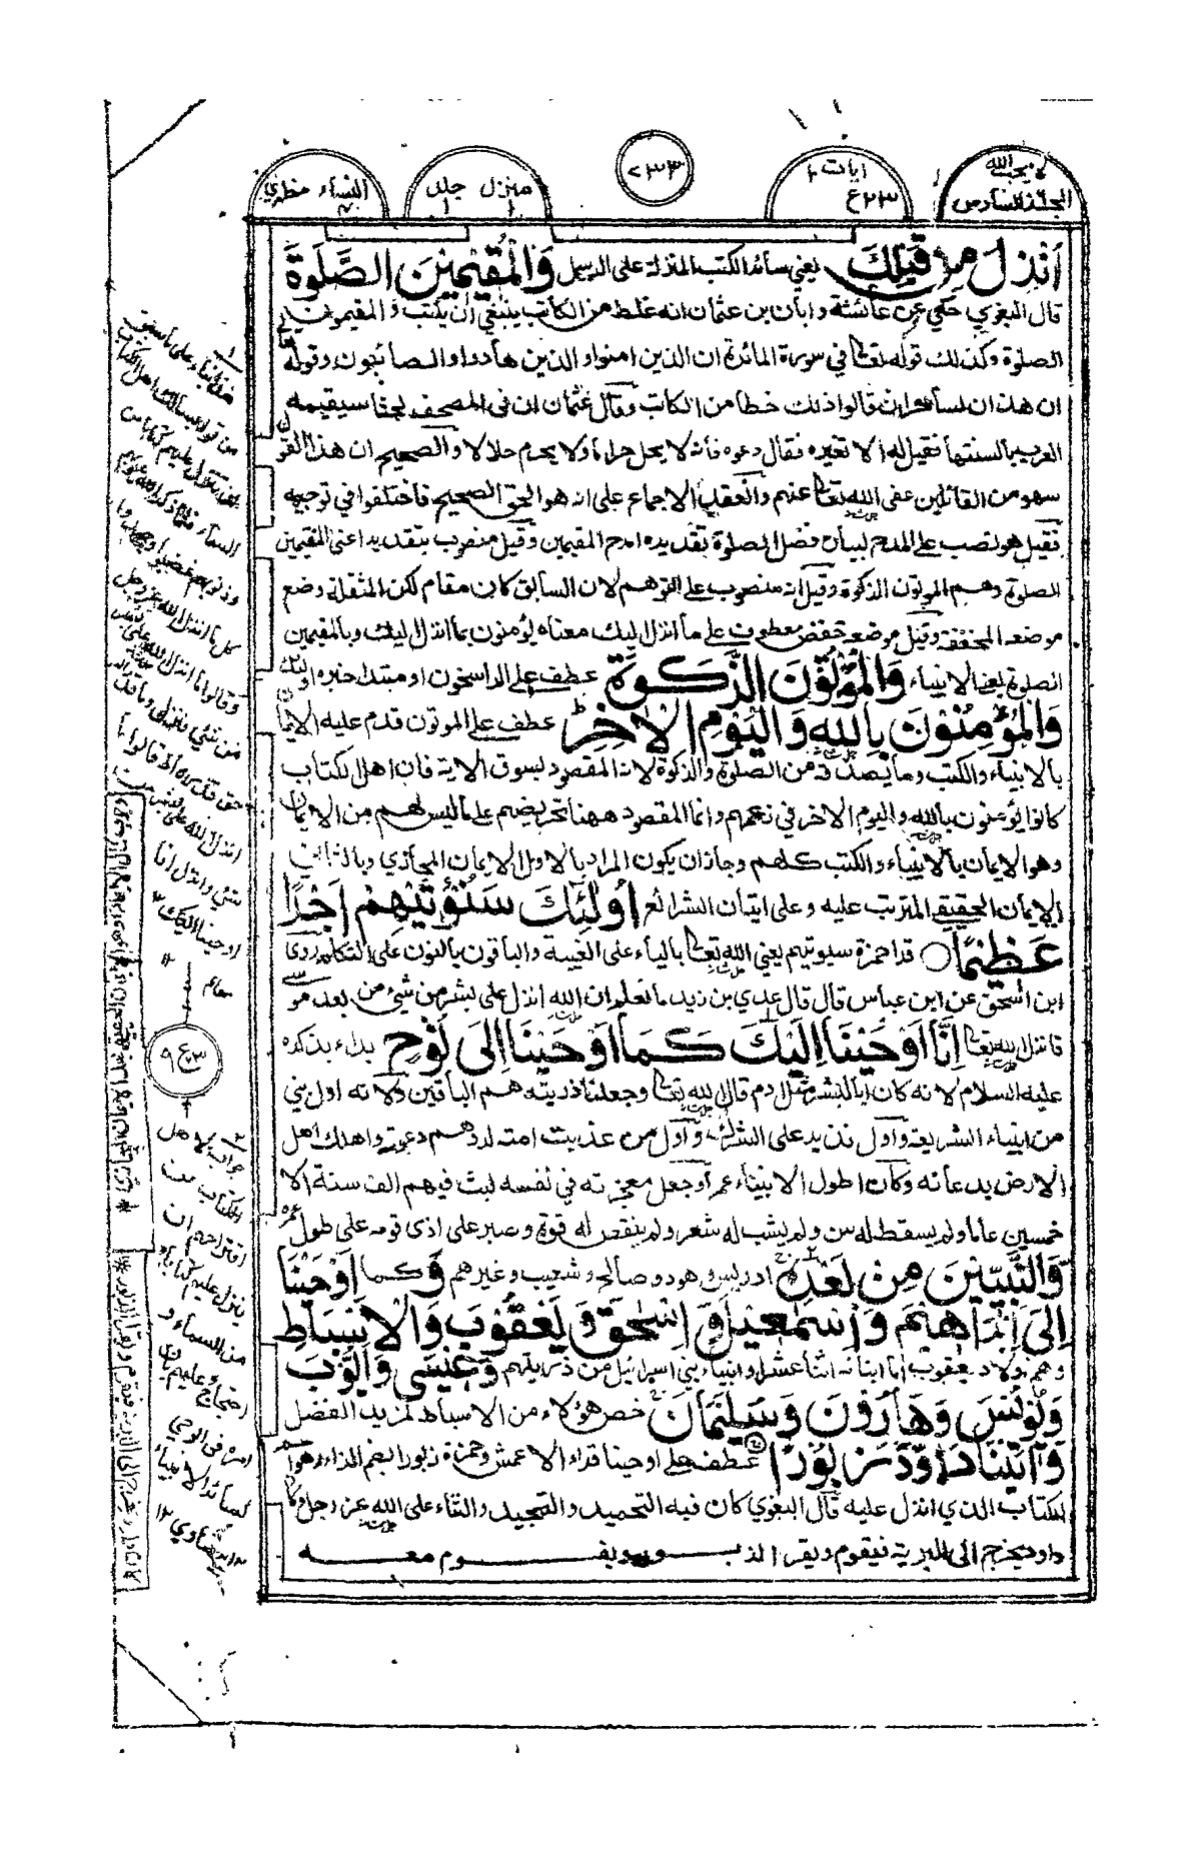 لا يحب الله
الجزء السادس
آيات ١
٢٣ع٣
٢٣٣
منزل ١
جلد ١
النساء ٤
مظهري
اُنْزِلَ مِنْ قَبْلِكَ يعني سائر الكتب المنزلة على الرسل وَالْمُقِيْمِيْنَ الصَّلٰوةَ
قال البغوي حكي عن عائشة وابان بن عثمان انه غلط من الكاتب ينبغي ان يكتب والمقيمون
الصلوة وكذلك قوله تعالى في سورة المائدة ان الذين امنوا والذين هادوا والصائبون وقوله تعالى
ان هذان لساحران قالوا ذلك خطا من الكاتب وقال عثمان ان في المصحف لحنا ستقيمه
العرب بالسنتها فقيل له الا تغيره فقال دعوه فانه لا يحل حراما ولا يحرم حلالا والصحيح ان هذا القول
سهو من القائلين عفى الله تعالى عنهم وانعقد الاجماع على انه هو الحق الصحيح فاختلفوا في توجيهه
فقيل هو نصب على المدح لبيان فضل الصلوة تقديره امدح المقيمين وقيل منصوب بتقدير اعني المقيمين
الصلوة وهم الموتون الزكوة وقيل انه منصوب على التوهم لان السابق كان مقام لكن المثقلة وضع
موضعه المخففة وقيل موضعه خفض معطوف على ما انزل اليك معناه يؤمنون بما انزل اليك وبالمقيمين
الصلوة يعني الانبياء وَالْمُؤْتُوْنَ الزَّكٰوةَ عطف على الراسخون او مبتدا خبره اولئك
وَالْمُؤْمِنُوْنَ بِاللّٰهِ وَالْيَوْمِ الْاٰخِرِ ؕ عطف على الموتون قدم عليه الايمان
بالانبياء والكتب وما يصدقه من الصلوة والزكوة لانه المقصود بسوق الاية فان اهل الكتاب
كانوا يؤمنون بالله واليوم الاخر في زعمهم وانما المقصود ههنا تحريضهم على ما ليس لهم من الايمان
وهو الايمان بالانبياء والكتب كلهم وجاز ان يكون المراد بالاول الايمان المجازي وبالثاني
الايمان الحقيقي المترتب عليه وعلى اتيان الشرائع اُولٰٓئِكَ سَنُؤْتِيْهِمْ اَجْرًا
عَظِيْمًا ○ قرا حمزة سيوتيهم يعني الله تعالى بالياء على الغيبة والباقون بالنون على التكلم روى
ابن اسحق عن ابن عباس قال قال عدي بن زيد ما نعلم ان الله انزل على بشر من شيء من بعد موسى
فانزل الله تعالى اِنَّاۤ اَوْحَيْنَاۤ اِلَيْكَ كَمَاۤ اَوْحَيْنَاۤ اِلٰى نُوْحٍ بداء بذكره
عليه السلام لانه كان ابا البشر مثل ادم قال الله تعالى وجعلنا ذريته هم الباقين ولانه اول نبي
من انبياء الشريعة واول نذير على الشرك واول من عذبت امته لردهم دعوته واهلك اهل
الارض بدعائه وكان اطول الانبياء عمرا وجعل معجزته في نفسه لبث فيهم الف سنة الا
خمسين عاما ولم يسقط له سن ولم يشب له شعر ولم ينقص له قوة وصبر على اذى قومه على طول عمره
وَّالنَّبِيّٖنَ مِنْۢ بَعْدِهٖ ادريس وهود وصالح وشعيب وغيرهم وَ كما اَوْحَيْنَاۤ
اِلٰۤى اِبْرٰهِيْمَ وَاِسْمٰعِيْلَ وَاِسْحٰقَ وَيَعْقُوْبَ وَالْاَسْبَاطِ
وهم اولاد يعقوب اما ابنائه اثنا عشر او انبياء بني اسرائيل من ذريتهم وَعِيْسٰى وَاَيُّوْبَ
وَيُوْنُسَ وَهَارُوْنَ وَسُلَيْمَانَ خص هؤلاء من الاسباط لمزيد الفضل
وَاٰتَيْنَا دَاوٗدَ زَبُوْرًا عطف على اوحينا قراء الاعمش وحمزة زبورا بضم الزاء وهو اسم
للكتاب الذي انزل عليه قال البغوي كان فيه التحميد والتمجيد والثناء على الله عز وجل وكان
داود يخرج الى البرية فيقوم ويقرا الزبور ويقوم معه
كل ما انزل الله عز وجل
اوحينا اليك
معالم
٣ع٩
جواب لاهل
الكتاب عن
اقتراحهم ان
ينزل عليهم كتابا
من السماء و
احتجاج عليهم بان
امره في الوحي
لسائر الانبياء
بيضاوي ١٢